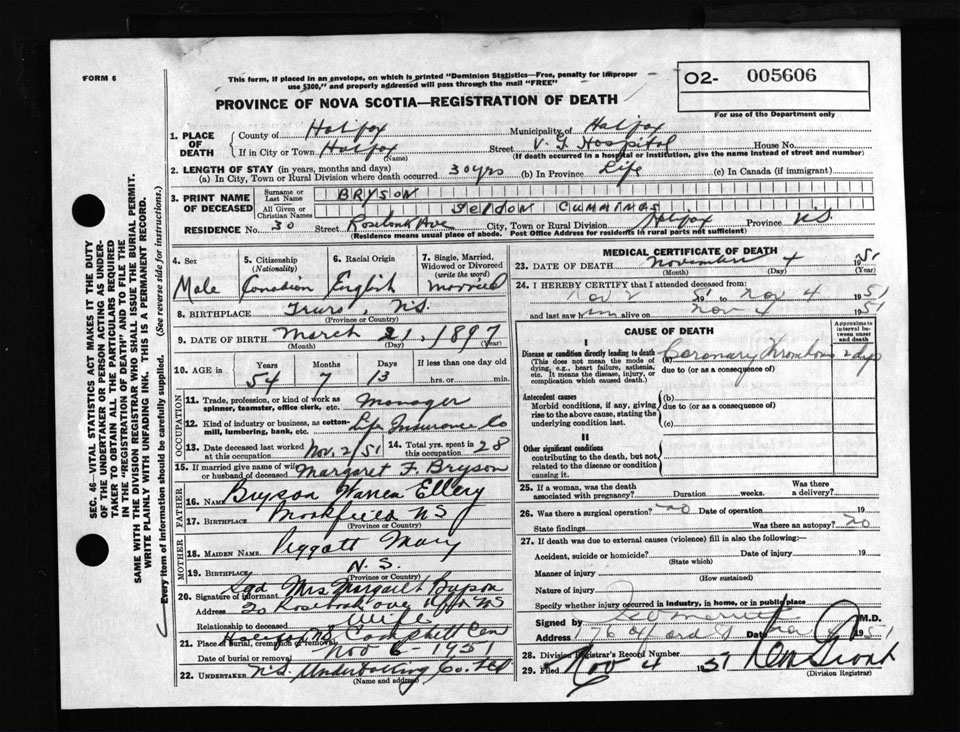 FORM 6
This form, if placed in an envelope, on which is printed "Dominion Statistics—Free, penalty for improper
use $300," and properly addressed will pass through the mail "FREE"
O2- 005606
For use of the Department only
PROVINCE OF NOVA SCOTIA—REGISTRATION OF DEATH
1. PLACE OF DEATH County of Halifax Municipality of Halifax
If in City or Town Halifax (Name) Street V. G. Hospital House No.
(If death occurred in a hospital or institution, give the name instead of street and number)
2. LENGTH OF STAY (in years, months and days)
(a) In City, Town or Rural Division where death occurred 30 yrs (b) In Province Life (c) In Canada (if immigrant)
3. PRINT NAME OF DECEASED Surname or Last Name BRYSON
All Given or Christian Names SELDON CUMMINGS
RESIDENCE No. 30 Street Rosebank Ave City, Town or Rural Division Halifax Province N.S.
(Residence means usual place of abode. Post Office Address for residents in rural parts not sufficient)
4. Sex 5. Citizenship (Nationality) 6. Racial Origin 7. Single, Married, Widowed or Divorced (write the word)
Male Canadian English married
8. BIRTHPLACE Truro, N.S.
(Province or Country)
9. DATE OF BIRTH March 21, 1897
(Month) (Day)
10. AGE in Years Months Days If less than one day old
54 7 13 hrs. or min.
OCCUPATION
11. Trade, profession, or kind of work as spinner, teamster, office clerk, etc. Manager
12. Kind of industry or business, as cotton-mill, lumbering, bank, etc. Life Insurance Co
13. Date deceased last worked at this occupation Nov. 2/51 14. Total yrs. spent in this occupation 28
15. If married give name of wife or husband of deceased Margaret F. Bryson
FATHER
16. Name Bryson Warren Ellery
17. Birthplace Brookfield NS
(Province or Country)
MOTHER
18. Maiden Name Piggott Mary
19. Birthplace N.S.
(Province or Country)
20. Signature of informant Sgd Mrs. Margaret Bryson
Address Rosebank ave NS
Relationship to deceased Wife
21. Place of burial, cremation or removal Halifax NS Camphill Cem
Date of burial or removal Nov 6 - 1951
22. UNDERTAKER N.S. Undertaking Co. Ltd
(Name and address)
MEDICAL CERTIFICATE OF DEATH
23. DATE OF DEATH November 4 1951
(Month) (Day) (Year)
24. I HEREBY CERTIFY that I attended deceased from:
Nov 2 1951 to Nov 4 1951
and last saw him alive on Nov 4 1951
CAUSE OF DEATH
Approximate interval between onset and death
I
Disease or condition directly leading to death (a) Coronary Thrombosis 2 days
(This does not mean the mode of dying, e.g., heart failure, asthenia, etc. It means the disease, injury, or complication which caused death.)
due to (or as a consequence of)
Antecedent causes
Morbid conditions, if any, giving rise to the above cause, stating the underlying condition last.
(b)
due to (or as a consequence of)
(c)
II
Other significant conditions
contributing to the death, but not related to the disease or condition causing it.
25. If a woman, was the death associated with pregnancy? Duration weeks. Was there a delivery?
26. Was there a surgical operation? no Date of operation 19
State findings Was there an autopsy? no
27. If death was due to external causes (violence) fill in also the following:—
Accident, suicide or homicide? Date of injury 19
(State which)
Manner of injury
(How sustained)
Nature of injury
Specify whether injury occurred in industry, in home, or in public place
Signed by M.D.
Address Date 1951
28. Division Registrar's Record Number
29. Filed Nov 4 1951
(Division Registrar)
SEC. 46—VITAL STATISTICS ACT MAKES IT THE DUTY
OF THE UNDERTAKER OR PERSON ACTING AS UNDER-
TAKER TO OBTAIN ALL THE PARTICULARS REQUIRED
IN THE "REGISTRATION OF DEATH" AND TO FILE THE
SAME WITH THE DIVISION REGISTRAR WHO SHALL ISSUE THE BURIAL PERMIT.
WRITE PLAINLY WITH UNFADING INK. THIS IS A PERMANENT RECORD.
Every item of information should be carefully supplied. (See reverse side for instructions.)